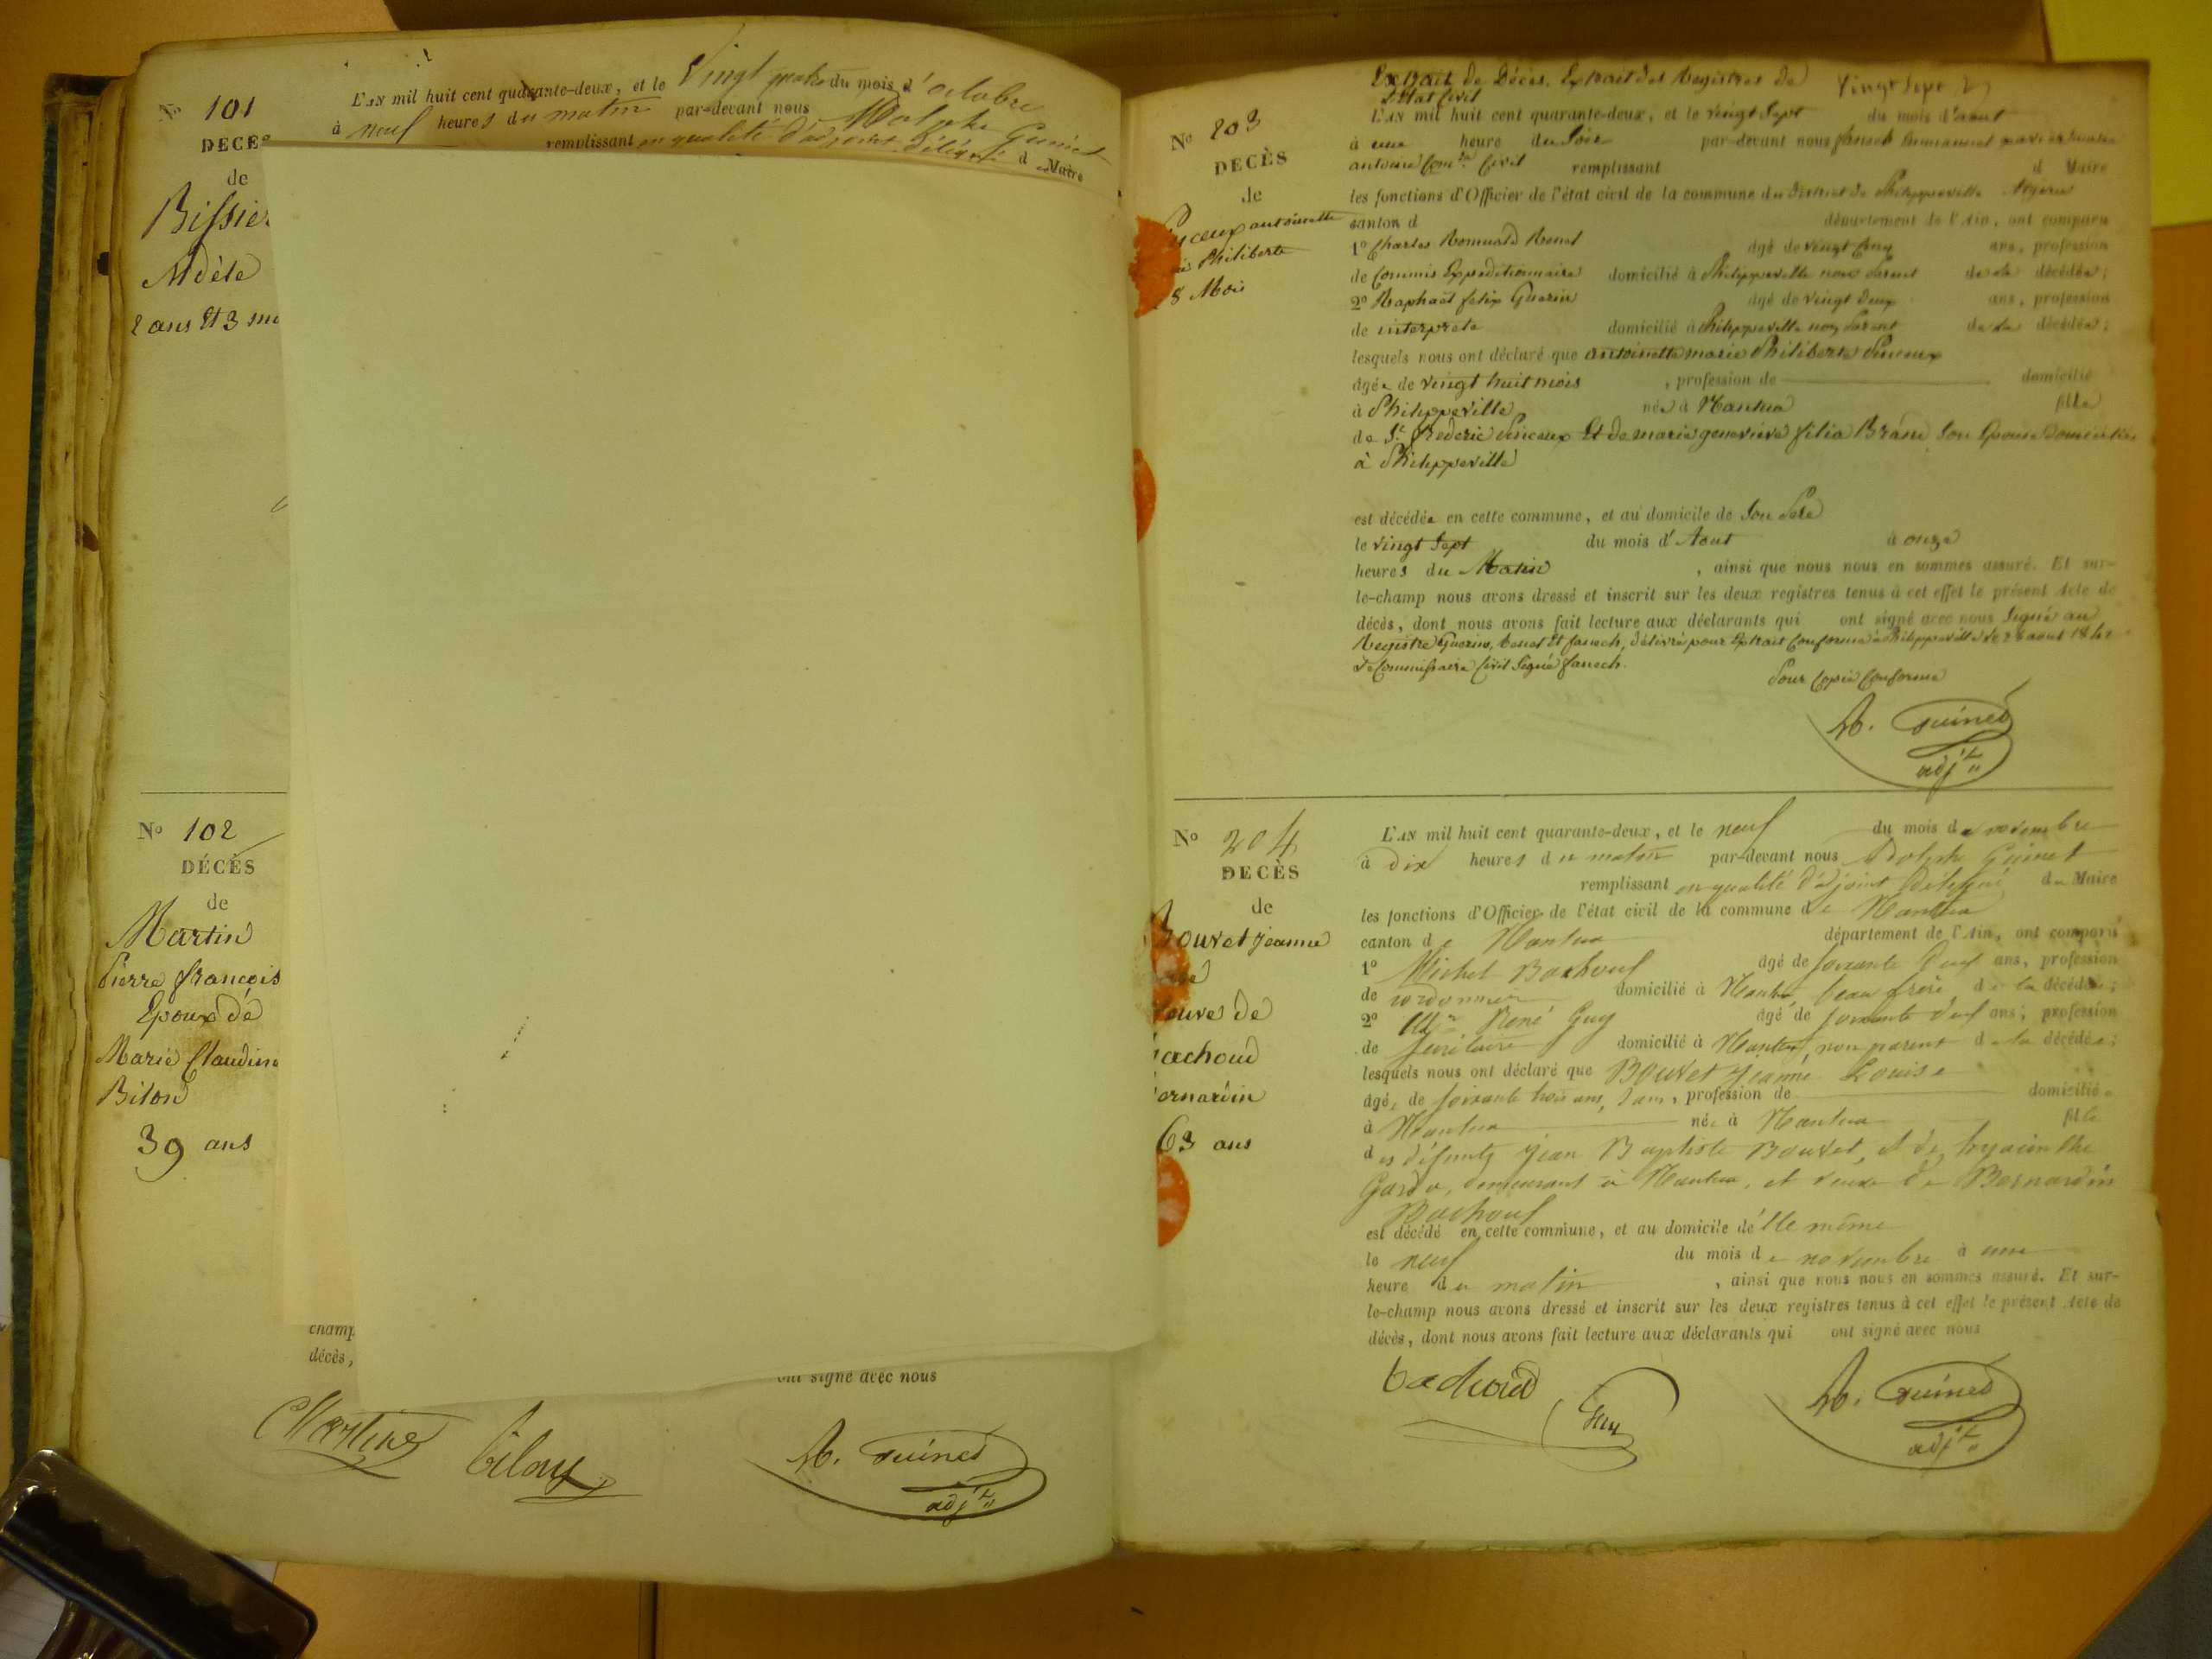 N° 101
DECES
de
Bissie
Adèle
2 ans et 3 m
L'AN mil huit cent quarante-deux, et le Vingt quatre du mois d'octobre
à neuf heures du matin par-devant nous Adolphe Guinet
remplissant en qualité d'adjoint délégué d Maire
N° 102
DÉCÈS
de
Martin
Pierre françois
Epoux de
Marie Claudin
Bilon
39 ans
champ
décès,
ont signé avec nous
Martin Bilon A. Guinet
adjt
N° 203
DECÈS
de
antoinette
Philiberte
8 Mois
Extrait de Décès. Extrait des Registres de Vingt Sept
L'Etat Civil
L'AN mil huit cent quarante-deux, et le vingt Sept du mois d'aout
à une heure du Soir par-devant nous fanech
antoine Comre Civil remplissant d Maire
les fonctions d'Officier de l'état civil de la commune du district de Philippeville Algérie
canton d département de l'Ain, ont comparu
1° Charles Romuald Benet âgé de vingt cinq ans, profession
de Commis Expeditionnaire domicilié à Philippeville non parent de la décédée;
2° Raphaël felix Guerin âgé de vingt deux ans, profession
de interprete domicilié à Philippeville non parent de la décédée;
lesquels nous ont déclaré que antoinette marie Philiberte
âgée de vingt huit mois , profession de domicilié
à Philippeville née à Nantua fille
de Sr frederic et de marie genevieve Brand son Epouse domiciliés
à Philippeville
est décédée en cette commune, et au domicile de Son Pere
le vingt Sept du mois d'Aout à onze
heures du Matin , ainsi que nous nous en sommes assuré. Et sur-
le-champ nous avons dressé et inscrit sur les deux registres tenus à cet effet le présent Acte de
décès, dont nous avons fait lecture aux déclarants qui ont signé avec nous Signé au
Registre Guerin, benet et fanech, délivré pour Extrait Conforme à Philippeville le 28 aout 1842
Le Commissaire Civil Signé fanech.
Pour Copie Conforme
A. Guinet
adjt
N° 204
DECÈS
de
Bouvet jeanne
euve de
achoud
ernardin
63 ans
L'AN mil huit cent quarante-deux, et le neuf du mois de novembre
à dix heures du matin par-devant nous Adolphe Guinet
remplissant en qualité d'adjoint délégué du Maire
les fonctions d'Officier de l'état civil de la commune de Nantua
canton de Nantua département de l'Ain, ont comparu
1° Michel Bachoud âgé de soixante ans, profession
de cordonnier domicilié à Nantua beau frère de la décédée;
2° René Guy âgé de soixante ans, profession
de secrétaire domicilié à Nantua, non parent de la décédée;
lesquels nous ont déclaré que Bouvet Jeanne Louise
âgé, de soixante trois ans, profession de domiciliée
à Nantua née à Nantua fille
des défunts jean Baptiste Bouvet, et de hyacinthe
demeurant à Nantua, et veuve de Bernardin
Bachoud
est décédé en cette commune, et au domicile d'elle même
le neuf du mois de novembre à une
heure du matin , ainsi que nous nous en sommes assuré. Et sur-
le-champ nous avons dressé et inscrit sur les deux registres tenus à cet effet le présent Acte de
décès, dont nous avons fait lecture aux déclarants qui ont signé avec nous
bachoud Guy A. Guinet
adjt